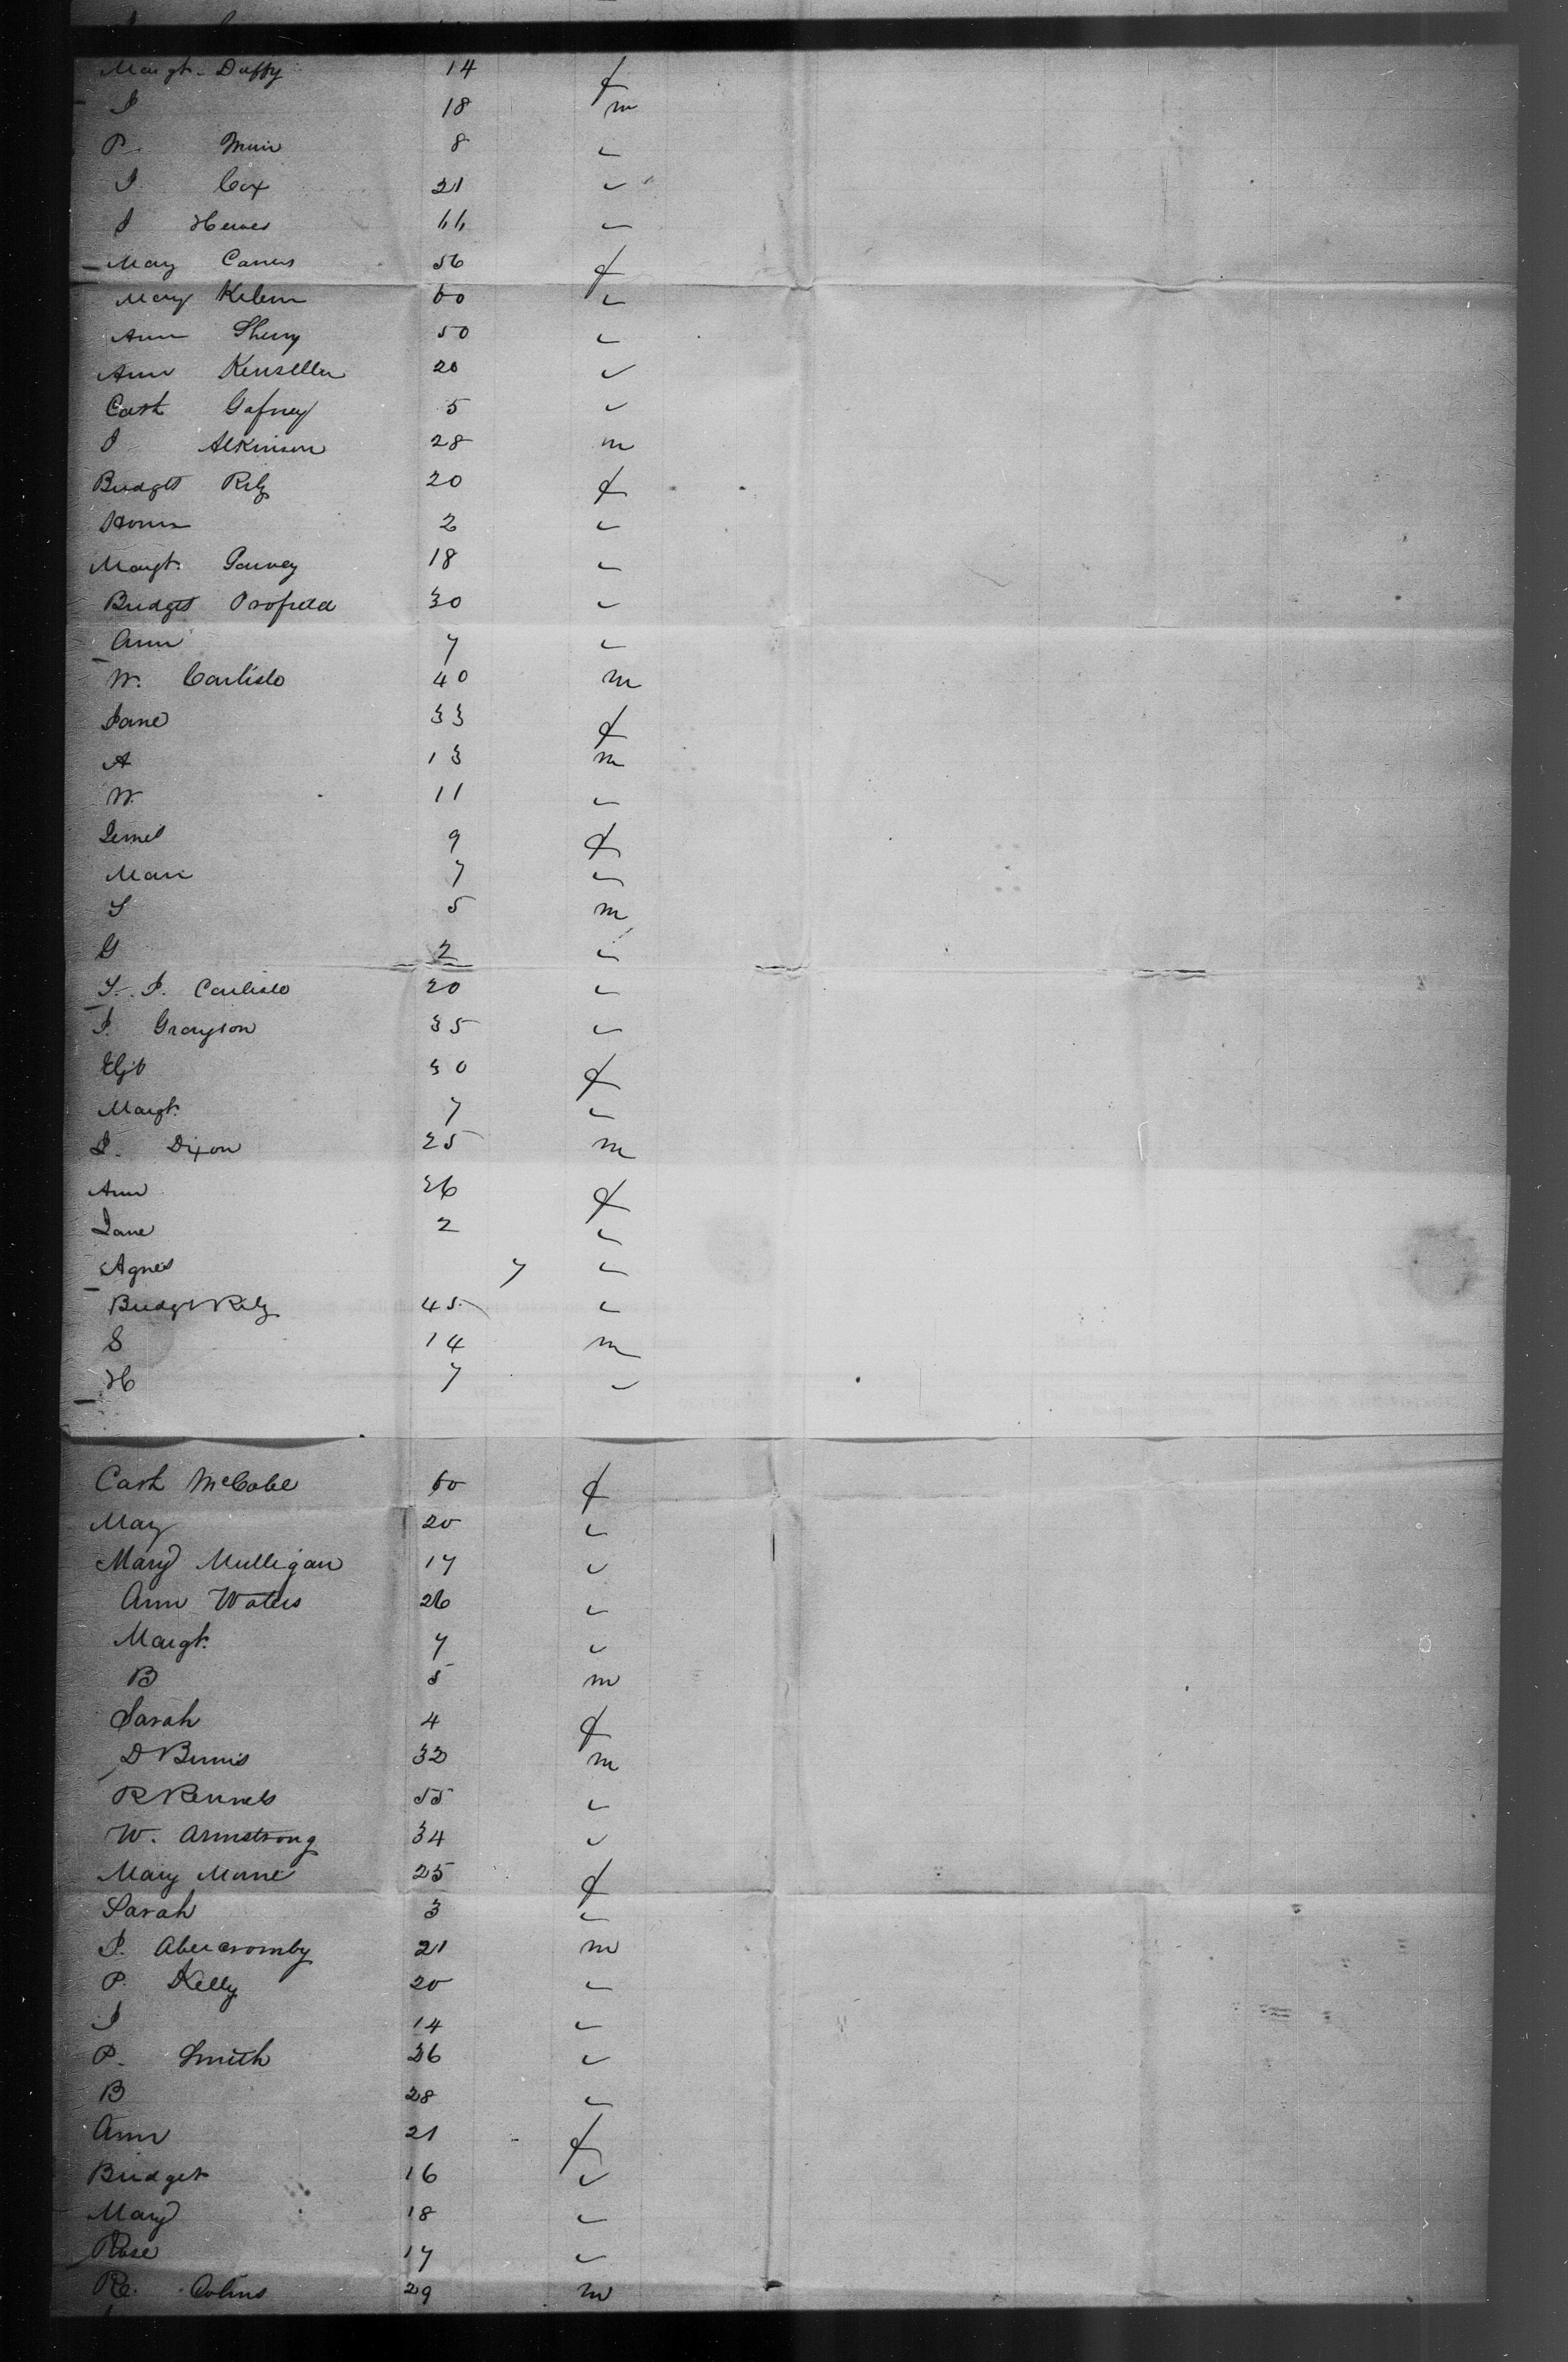 Margt. Duffy 14 f
J 18 m
P. Muir 8 "
J. Cox 21 "
J Hewes 66 "
Mary Carrus 56 f
Mary Kelem 60 "
Ann Sherry 50 "
Ann Kensella 20 "
Cath Gafney 5 "
J Atkinson 28 m
Bridget Rily 20 f
2 "
Margt. Garvey 18 "
Bridget 30 "
Ann 7 "
W. Carlisle 40 m
Jane 33 f
A 13 m
W. 11 "
9 f
Mary 7 "
S 5 m
G 2 "
S. J. Carlisle 20 "
J. Grayson 35 "
Elizt 30 f
Margt. 7 "
J. Dixon 25 m
Ann 26 f
Jane 2 "
Agnes 7 "
Bridgt Rily 45 "
S 14 m
H 7 "
Cath McCabe 60 f
Mary 20 "
Mary Mulligan 17 "
Ann Waters 26 "
Margt. 7 "
B 5 m
Sarah 4 f
D Binnis 32 m
R Rennels 55 "
W. Armstrong 34 "
Mary Morne 25 f
Sarah 3 "
J. Abercromby 21 m
P. Kelly 20 "
J 14 "
P. Smith 26 "
B 28 "
Ann 21 f
Bridget 16 "
Mary 18 "
Rose 17 "
Re. Colins 29 m